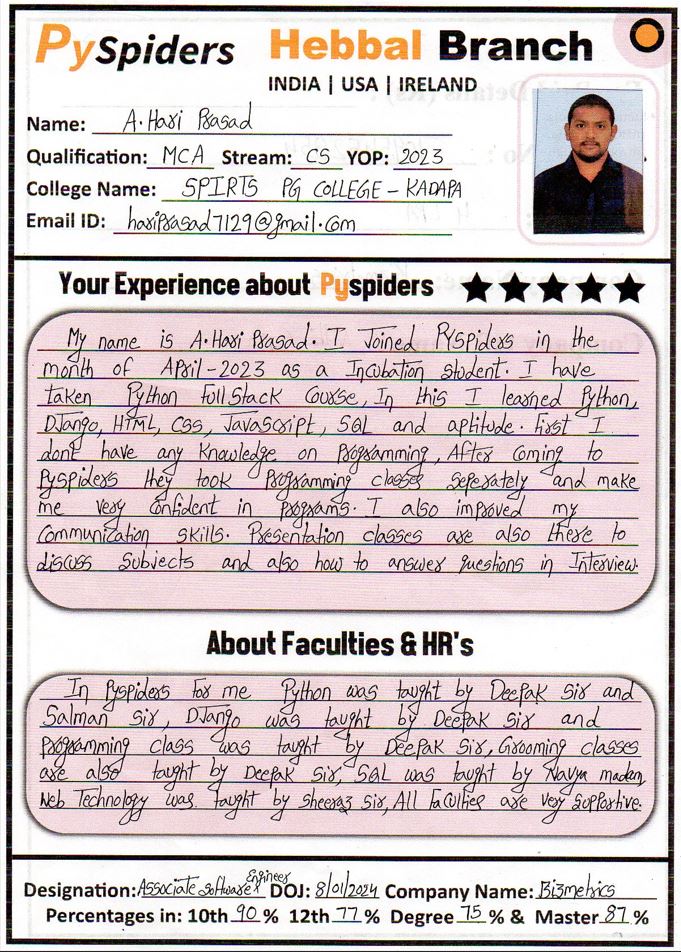 PySpiders Hebbal Branch
INDIA | USA | IRELAND
Name: A. Hari Prasad
Qualification: MCA Stream: CS YOP: 2023
College Name: SPIRTS PG COLLEGE - KADAPA
Email ID: hariprasad7129@gmail.com
Your Experience about Pyspiders
My name is A. Hari Prasad. I Joined PYSpiders in the
month of April-2023 as a Incubation student. I have
taken Python FullStack Course, In this I learned Python,
DJango, HTML, CSS, JavaScript, SQL and aptitude. First I
dont have any Knowledge on Programming, After Coming to
Pyspiders they took Programming classes seperately and make
me very Confident in programs. I also improved my
Communication skills. Presentation classes are also there to
discuss Subjects and also how to answer questions in Interview.
About Faculties & HR's
In Pyspiders For me Python was taught by Deepak Sir and
Salman Sir, DJango was taught by Deepak Sir and
Programming class was taught by Deepak Sir, Grooming classes
are also taught by Deepak Sir, SQL was taught by Navya madam,
Web Technology was taught by Sheeraz Sir, All Faculties are very Supportive.
Designation: Associate Software Engineer DOJ: 8/01/2024 Company Name: Bizmetrics
Percentages in: 10th 90 % 12th 77 % Degree 75 % & Master 87 %